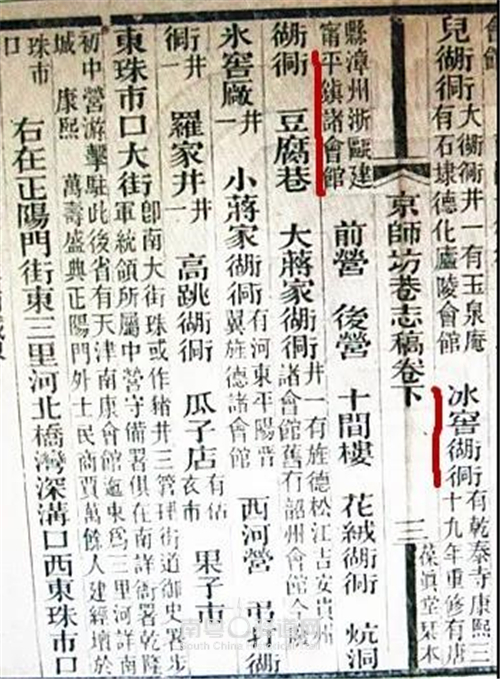 會館
兒衚衕大衚衕井一有玉泉庵
有石埭德化廬陵會館
冰窖衚衕有乾泰寺康熙三
十九年重修有唐
京師坊巷志稿卷下 三 葆眞堂栞本
縣漳州浙甌建
甯平鎮諸會館
前營 後營 十間樓 花絨衚衕 炕洞
衚衕 豆腐巷 大蔣家衚衕井一有旌德松江吉安貴州
諸會館舊有韶州會館今
氷窖廠井一 小蔣家衚衕有河東平陽晉
翼旌德諸會館
西河營
衕井一 羅家井井一 高跳衚衕 瓜子店有估衣市 果子市
東珠市口大街卽南大街珠或作豬井三管理街道御史署步
軍統領所屬中營守備署俱在南詳衙署乾隆
初中營游擊駐此後省有天津南康會館迤東爲三里河詳南
城 康熙 萬壽盛典正陽門外士民商賈萬餘人建經壇於
珠市
口
右在正陽門街東三里河北橋灣深溝口西東珠市口
South China Historical Trail